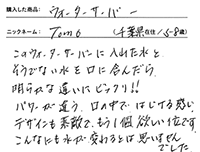 購入した商品： ウォーターサーバー
ニックネーム： Tomo （千葉県在住／58歳）
このウォーターサーバーに入れた水と、
そうでない水を口に含んだら、
明らかな違いにビックリ!!
パワーが違う、口の中ではじける感じ、
デザインも素敵で、もう1個欲しい位です。
こんなにも水が変わるとは思いません
でした。